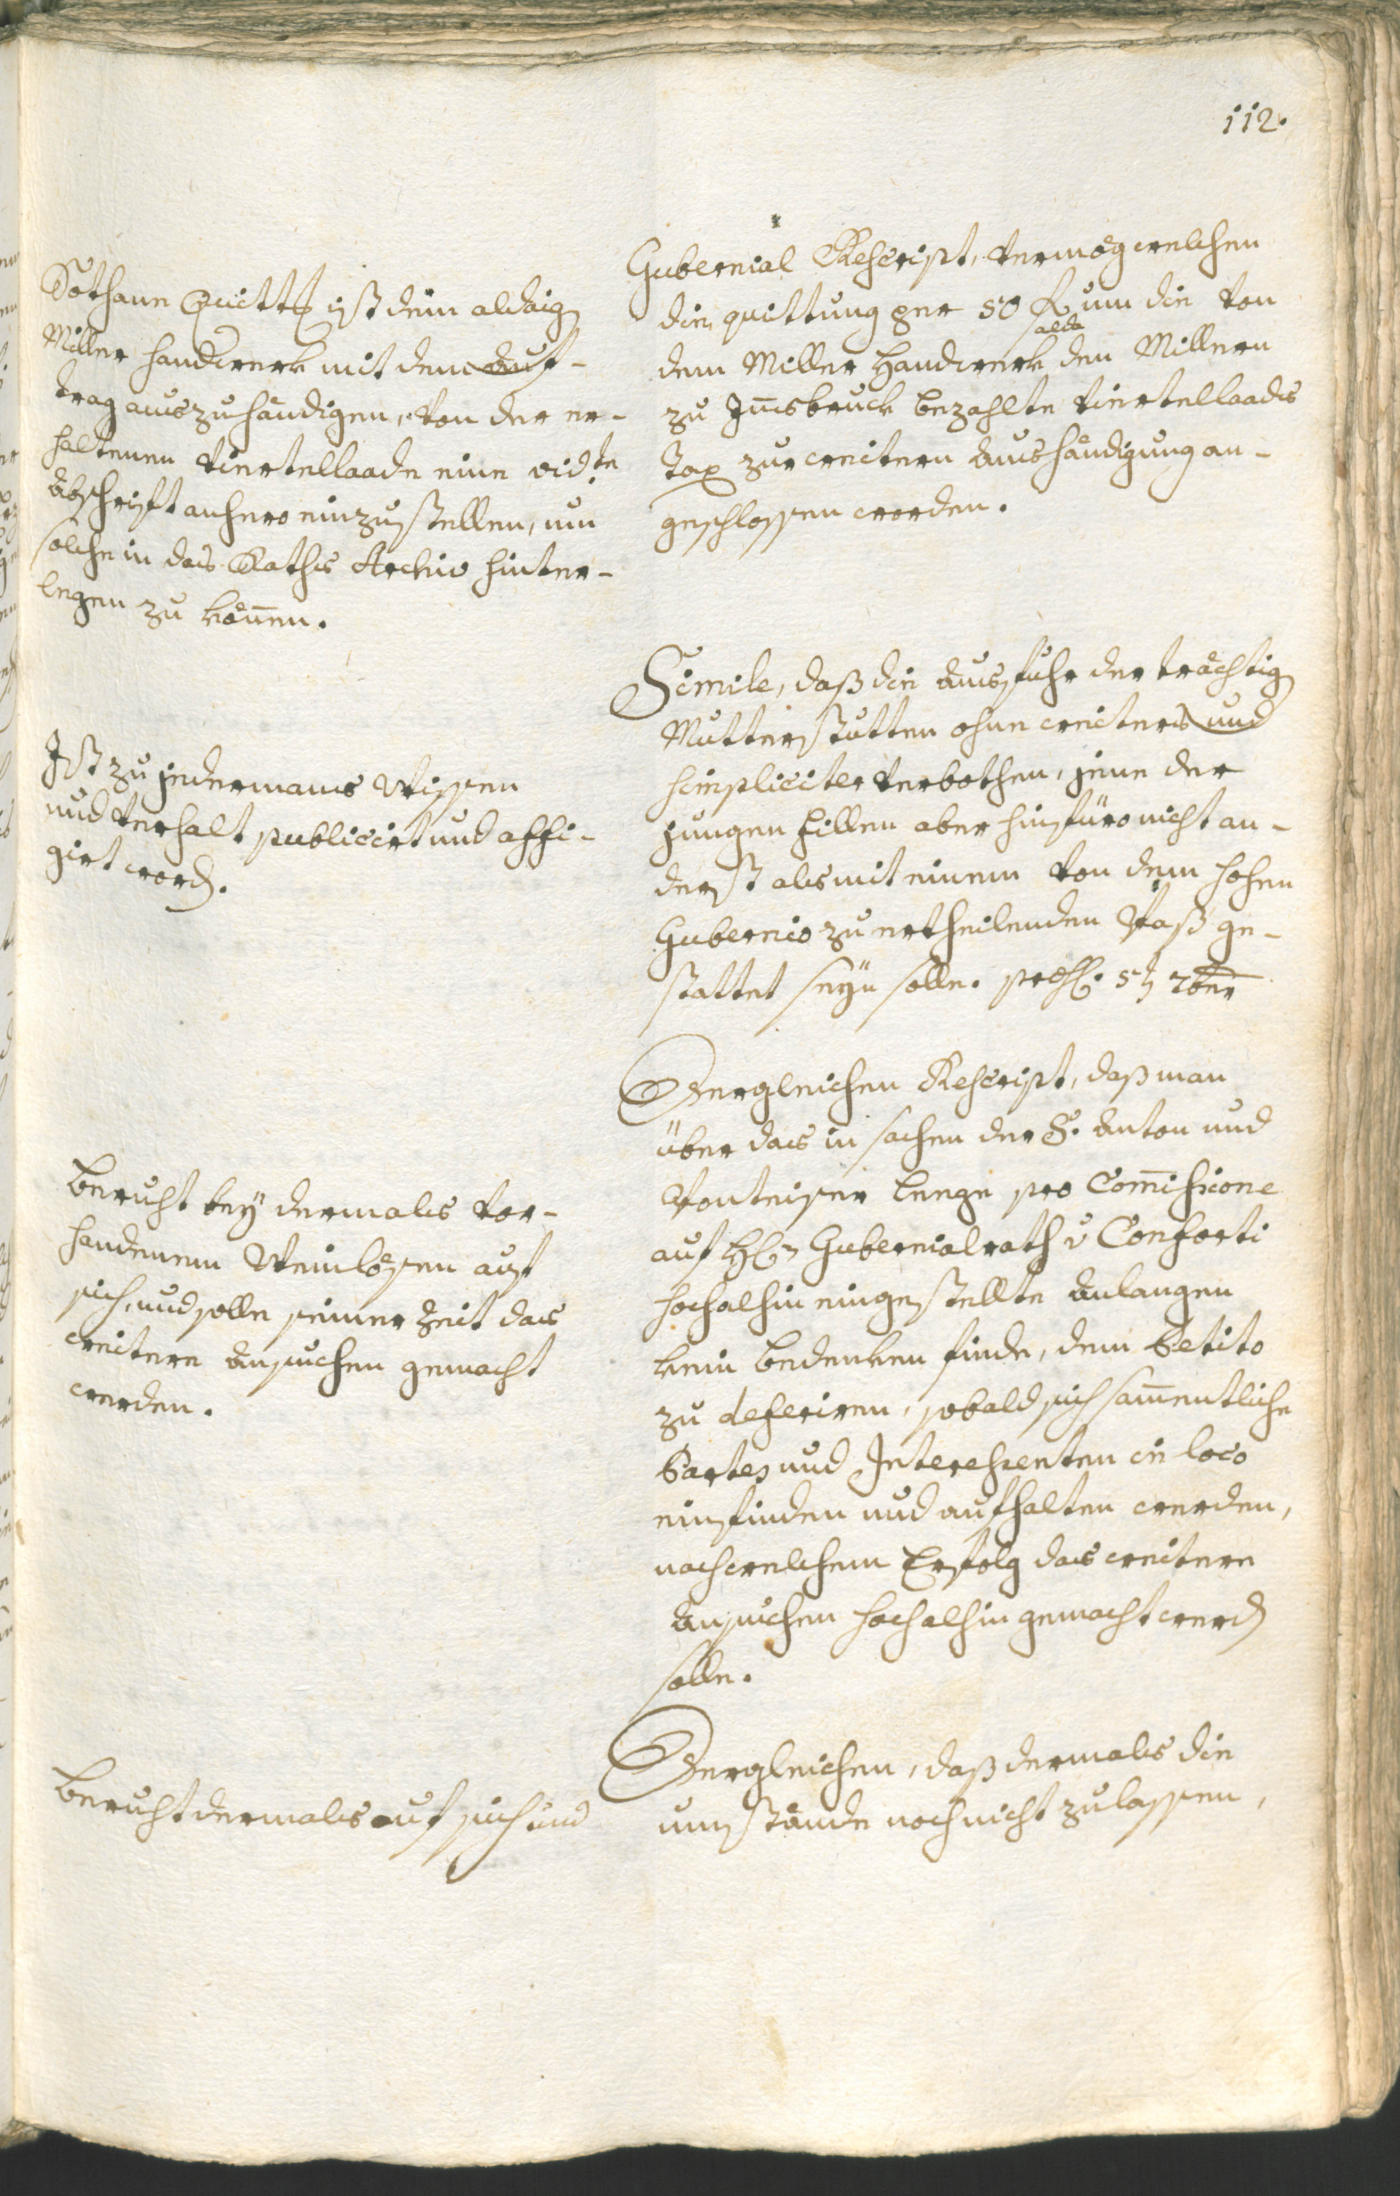 112.
Gubernial Rescript, vermög welchen
die quittung per 50 f um die von
alda
dem Miller Handwerk den Millern
zu Iñsbruck bezahlte viertellaads
Tax zur weitern aushändigung an-
geschlossen worden.
Sothane Quittg ist dem aldaig
Miller Handwerk mit dem auf-
trag auszuhändigen, von der er-
haltenen viertellaade eine vidte
abschrift anhero einzustellen, um
solche in das Raths Archiv hinter-
legen zu köñen.
Simile, daß die ausfuhr der trächtig
Mutterstutten ohne weiters und
simpliciter verbothen, jene der
jungen fillen aber hinfüro nicht an-
derst als mit einem von dem hohen
Gubernio zu ertheilenden Paß ge-
stattet seyn solle. 5t 7ber
Ist zu jedermans Wissen
und verhalt publicirt und affi-
girt word.
Dergleichen Rescript, daß man
über das in sachen der F. Anton und
lenge pro Com̄issione
auf H Gubernialrath v Conforti
hochalhin eingestellte anlangen
kein bedenken finde, dem Petito
zu deferiren, sobald sich sam̄entliche
Partes und Interessenten in loco
einfinden und aufhalten werden,
nach welchem Erfolg das weitere
ansuchen hochalhin gemacht werd
solle.
Beruht bey dermals vor-
handenem Weinlösen auf
sich, und solle seiner Zeit das
weitere ansuchen gemacht
werden.
Dergleichen, daß dermals die
umstände noch nicht zulassen,
Beruht dermals auf sich und